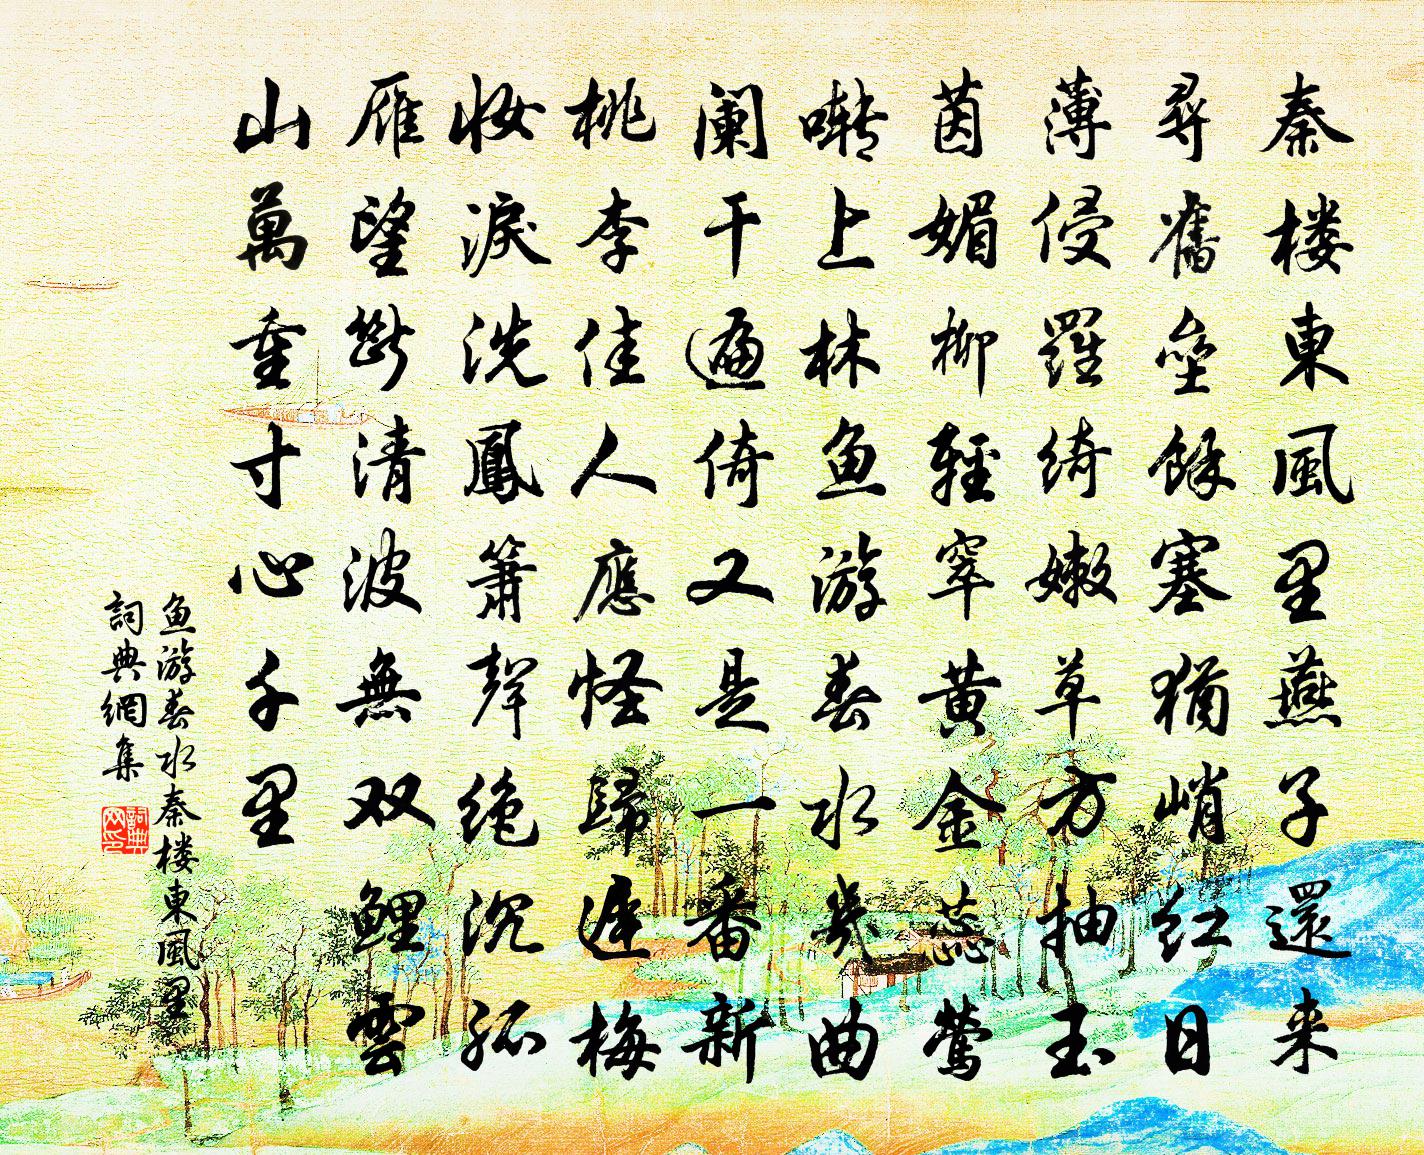 秦楼東風里燕子還来
尋舊壘餘塞猶峭紅日
薄侵羅綺嫩草方抽玉
茵媚柳輕窣黄金蕊鶯
囀上林鱼游春水幾曲
阑干遍倚又是一番新
桃李佳人應怪歸遅梅
妝淚洗鳳箫聲绝沉孤
雁望斷清波無双鲤雲
山萬重寸心千里
鱼游春水秦楼東風里
詞典網集
詞典网印